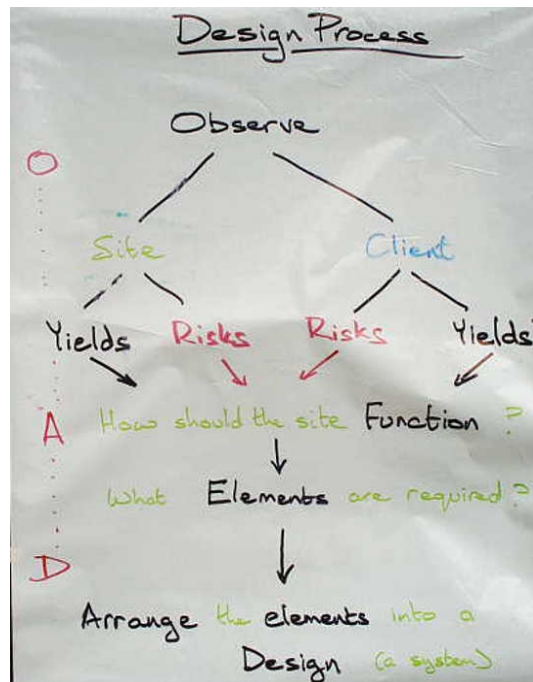 Design Process
Observe
O
Site Client
Yields Risks Risks Yields
A How should the site Function ?
What Elements are required?
D
Arrange the elements into a
Design (a system)